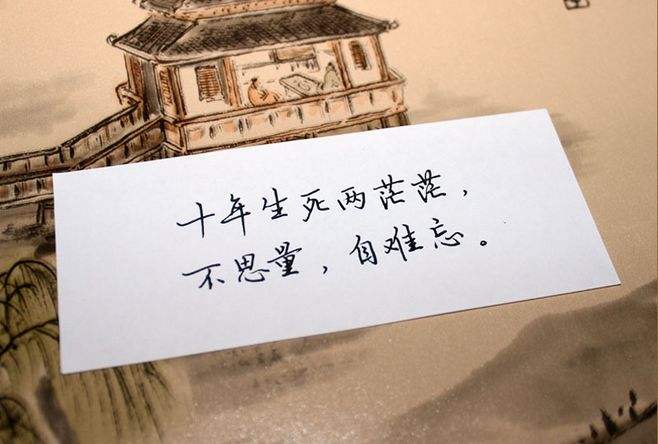 十年生死两茫茫，
不思量，自难忘。